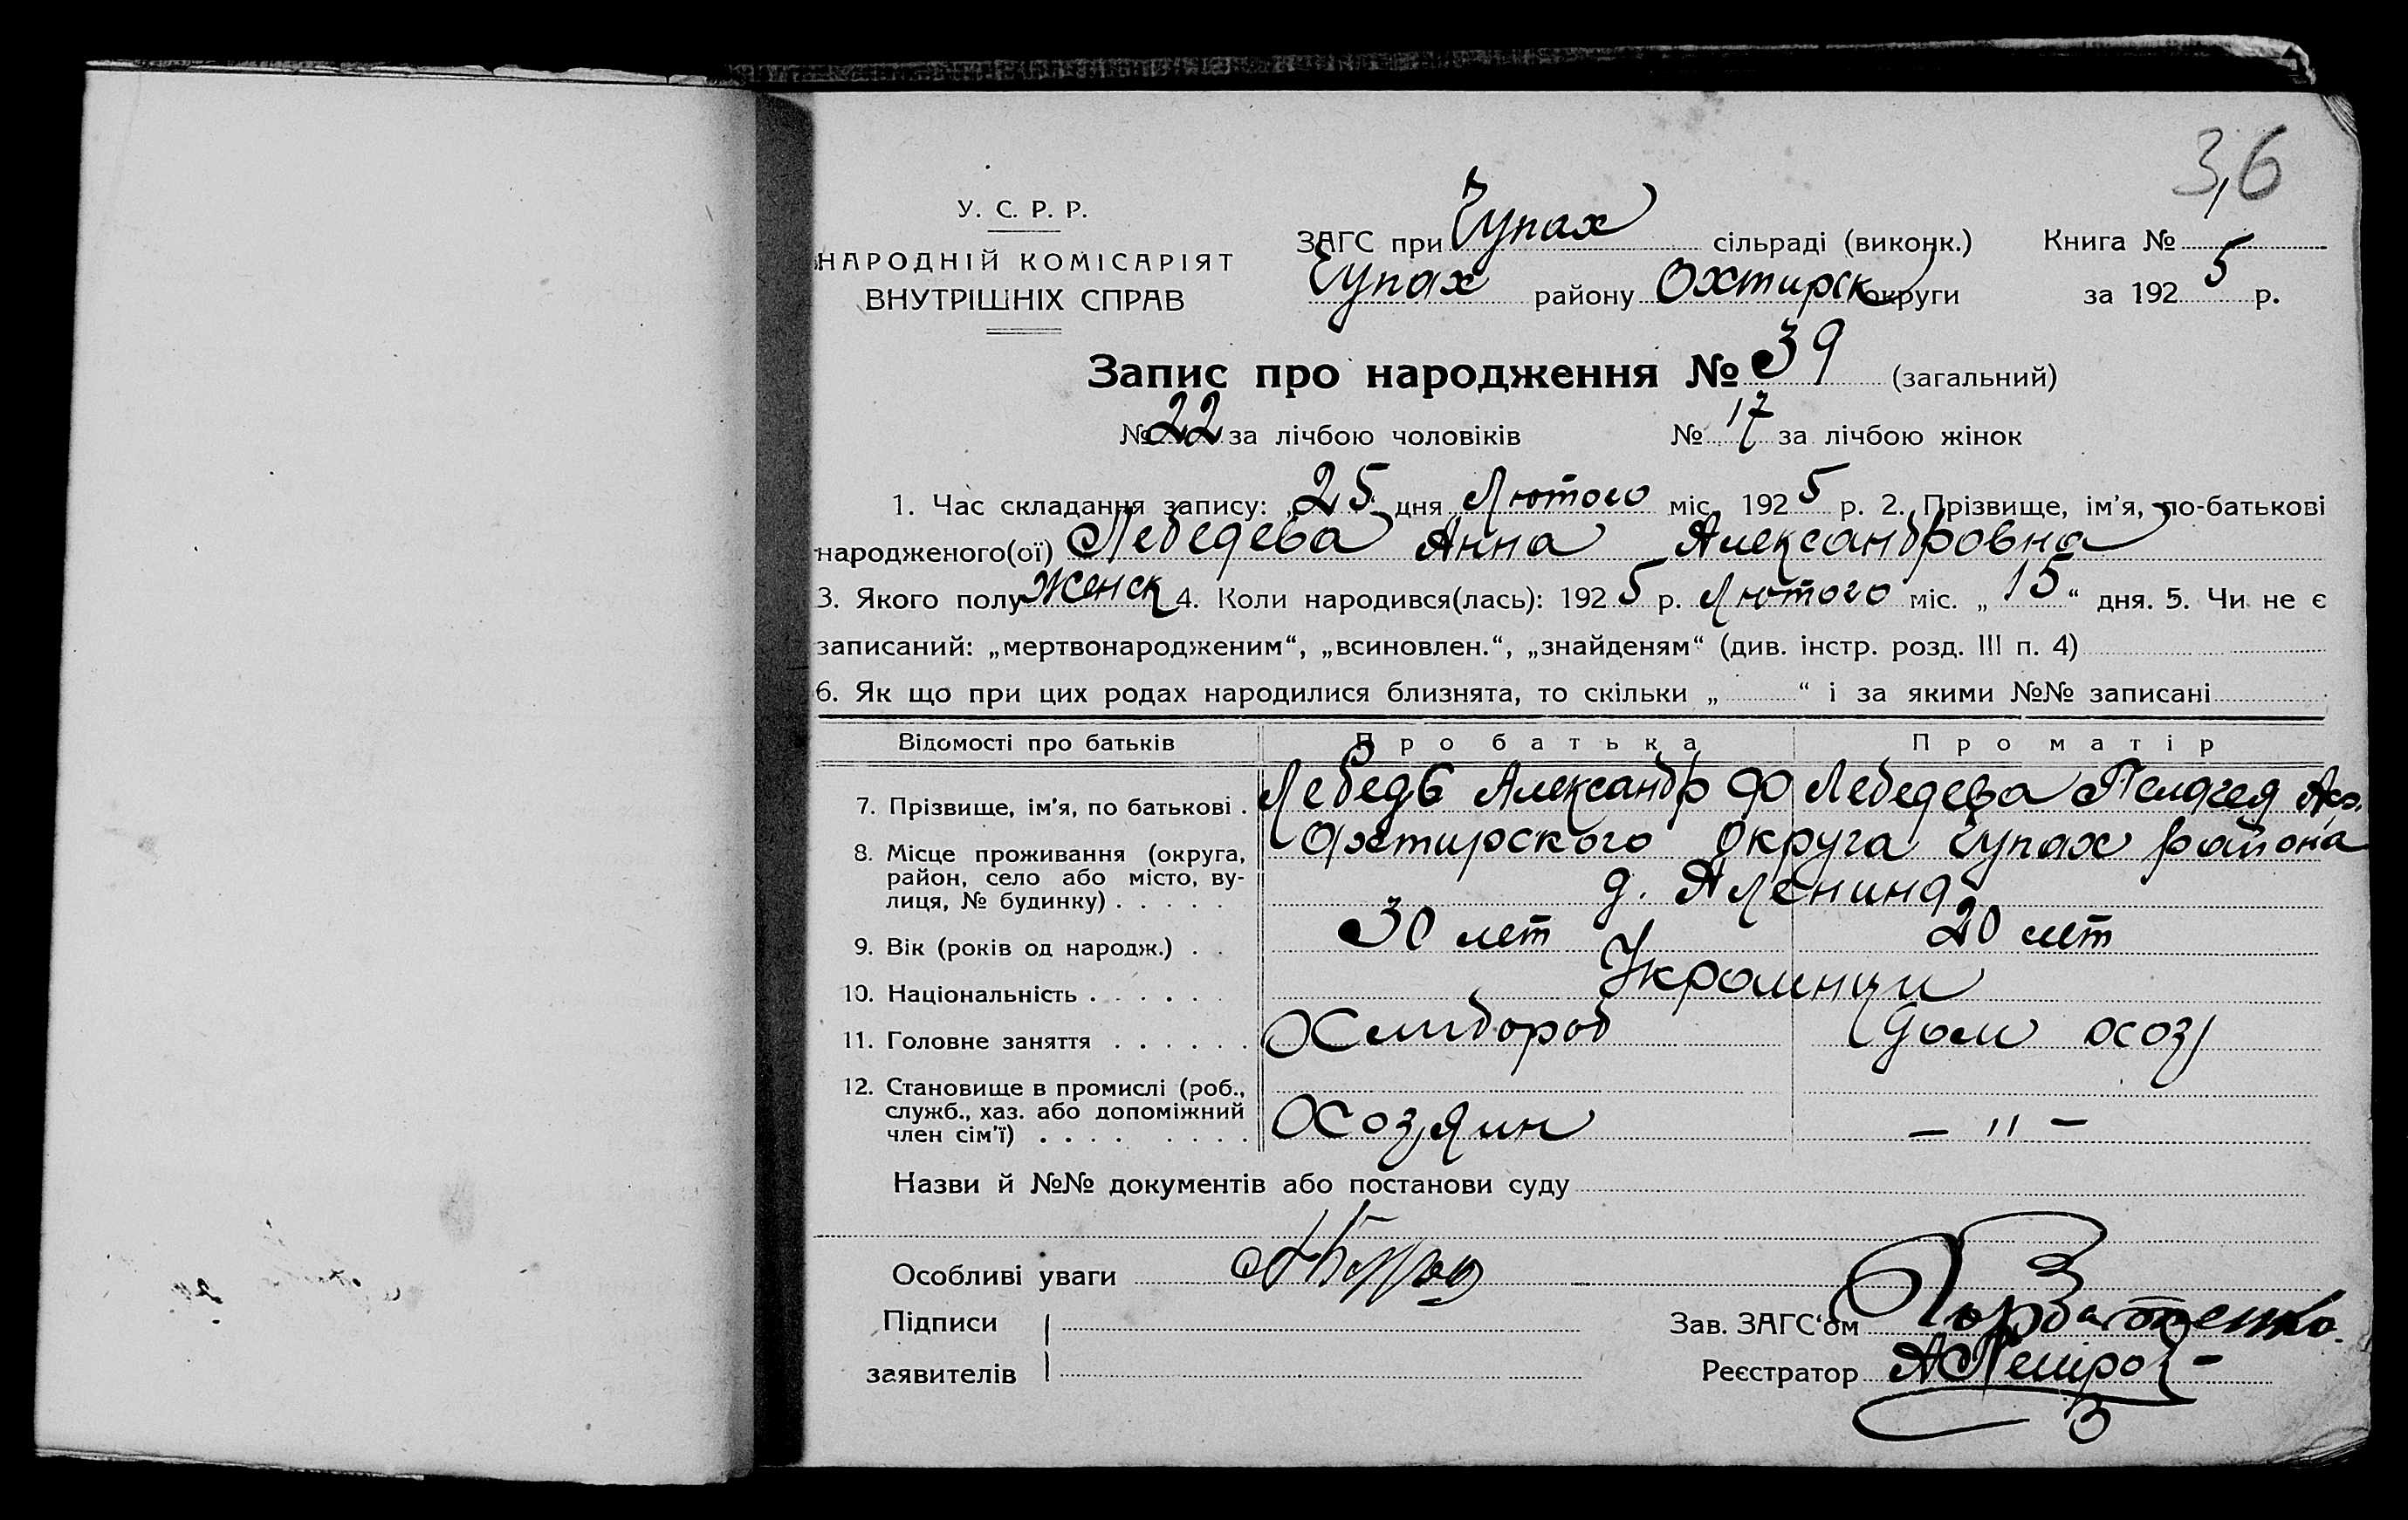 3,6
У. С. Р. Р.
НАРОДНІЙ КОМІСАРІЯТ
ВНУТРІШНІХ СПРАВ
ЗАГС при Чупах сільраді (виконк.) Книга №
Чупах району Охтирск округи за 192 5 р.
Запис про народження № 39 (загальний)
№ 22 за лічбою чоловіків № 17 за лічбою жінок
1. Час складання запису: „ 25 дня Лютого міс. 192 5 р. 2. Прізвище, ім'я, по-батькові
народженого(ої) Лебедева Анна Александровна
3. Якого полу Женск 4. Коли народився(лась): 192 5 р. Лютого міс. „ 15 “ дня. 5. Чи не є
записаний: „мертвонародженим“, „всиновлен.“, „знайденям“ (див. інстр. розд. III п. 4)
6. Як що при цих родах народилися близнята, то скільки „ “ і за якими №№ записані
Відомості про батьків Про батька Про матір
7. Прізвище, ім'я, по батькові . Лебедев Александр Ф Лебедева Пелагея
8. Місце проживання (округа, Охтирского округа Чупах района
район, село або місто, ву-
лиця, № будинку) . . . . . д.
9. Вік (років од народж.) . . 30 лет 20 лет
10. Національність . . . . . . Украинци
11. Головне заняття . . . . . . Хлибороб Дом хоз
12. Становище в промислі (роб.,
служб., хаз. або допоміжний
член сім'ї) . . . . . . . . Хозяин — " —
Назви й №№ документів або постанови суду
Особливі уваги
Підписи
заявителів
Зав. ЗАГС‘ом
Реєстратор